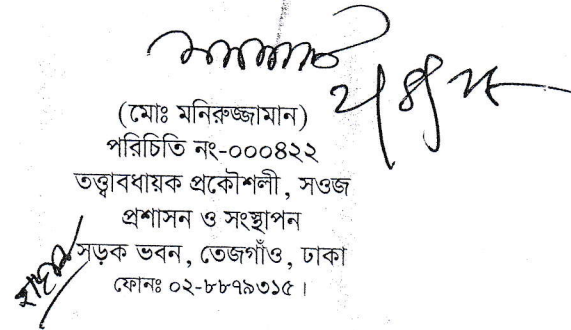 (মোঃ মনিরুজ্জামান)
পরিচিতি নং-০০০৪২২
তত্ত্বাবধায়ক প্রকৌশলী, সওজ
প্রশাসন ও সংস্থাপন
সড়ক ভবন, তেজগাঁও, ঢাকা
ফোনঃ ০২-৮৮৭৯৩১৫।